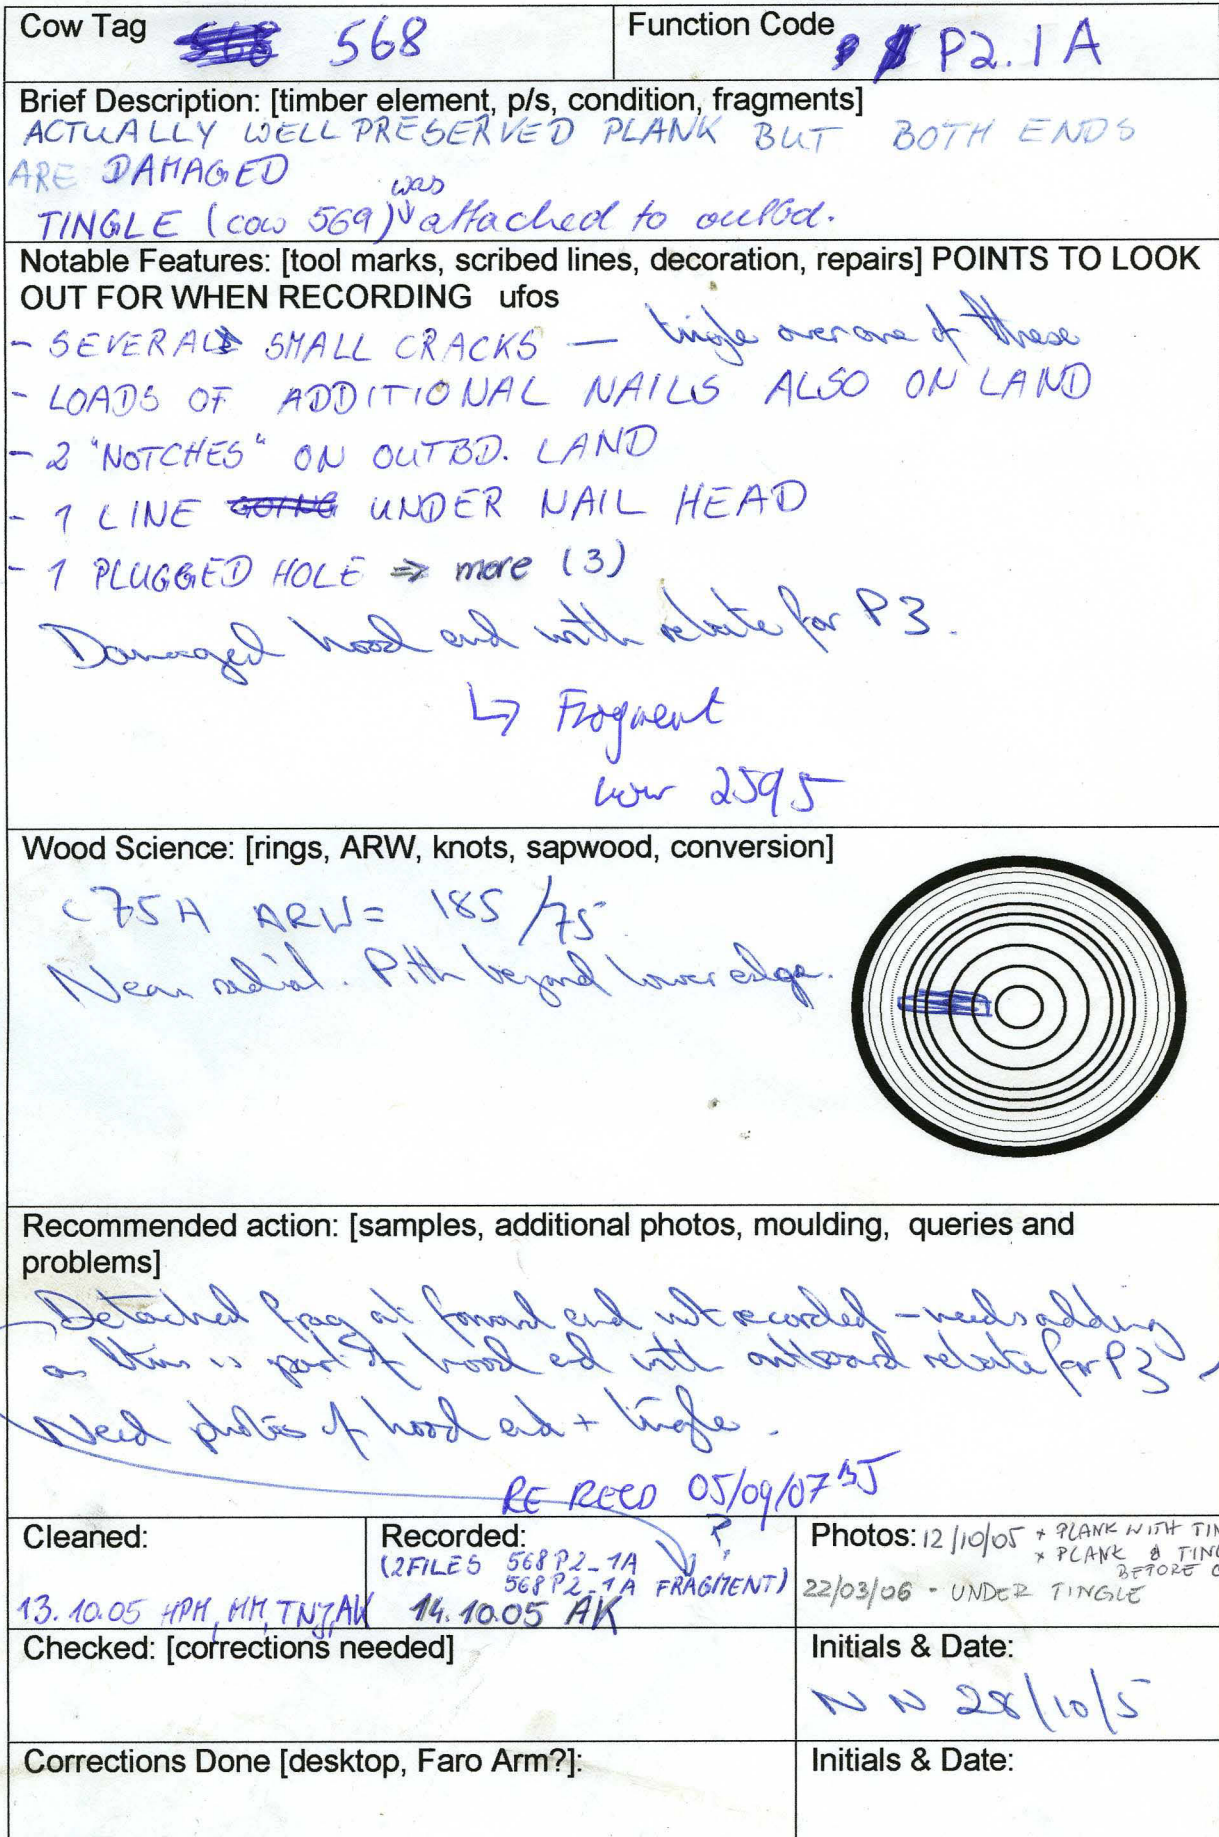 Cow Tag 568 568
Function Code P2.1A
Brief Description: [timber element, p/s, condition, fragments]
ACTUALLY WELL PRESERVED PLANK BUT BOTH ENDS
ARE DAMAGED
was
TINGLE (cow 569) attached to outbd.
Notable Features: [tool marks, scribed lines, decoration, repairs] POINTS TO LOOK
OUT FOR WHEN RECORDING ufos
- SEVERAL SMALL CRACKS — tingle over one of these
- LOADS OF ADDITIONAL NAILS ALSO ON LAND
- 2 "NOTCHES" ON OUTBD. LAND
- 1 LINE GOING UNDER NAIL HEAD
- 1 PLUGGED HOLE ⇒ more (3)
Damaged hood end with rebate for P3.
↳ Fragment
2595
Wood Science: [rings, ARW, knots, sapwood, conversion]
c75A ARW = 185/75
Near radial. Pith beyond lower edge.
Recommended action: [samples, additional photos, moulding, queries and
problems]
Detached frag at forward end not recorded - needs adding
as this is part of hood end with outboard rebate for P3
Need photos of hood end + tingle.
RE RECD 05/09/07 BJ
Cleaned:
13.10.05 HPM, MM, TNJ, AW
Recorded:
?
(2 FILES 568P2_1A
568P2_1A FRAGMENT)
14.10.05 AK
Photos: 12/10/05 * PLANK WITH TIN
* PLANK & TING
BEFORE C
22/03/06 - UNDER TINGLE
Checked: [corrections needed]
Initials & Date:
NN 28/10/5
Corrections Done [desktop, Faro Arm?]:
Initials & Date: